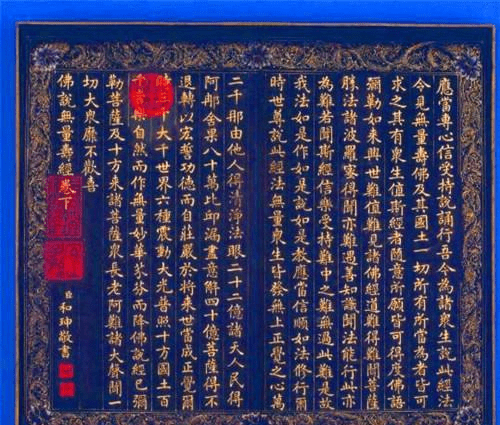 應當專心信受持說誦行吾今為諸衆生說此經法
今見無量壽佛及其國土一切所有所當為者皆可
求之其有衆生值斯經者隨意所願皆可得度佛語
彌勒如來興世難值難見諸佛經道難得難聞菩薩
勝法諸波羅蜜得聞亦難遇善知識聞法能行此亦
為難若聞斯經信樂受持難中之難無過此難是故
我法如是作如是說如是教應當信順如法修行爾
時世尊說此經法無量衆生皆發無上正覺之心萬
二千那由他人得清淨法眼二十二億諸天人民得
阿那舍果八十萬比邱漏盡意解四十億菩薩得不
退轉以宏誓功德而自莊嚴於將來世當成正覺爾
時三千大千世界六種震動大光普照十方國土百
千音樂自然而作無量妙華芬芬而降佛說經已彌
勒菩薩及十方來諸菩薩衆長老阿難諸大聲聞一
切大衆靡不歡喜
佛說無量壽經卷下
臣和珅敬書